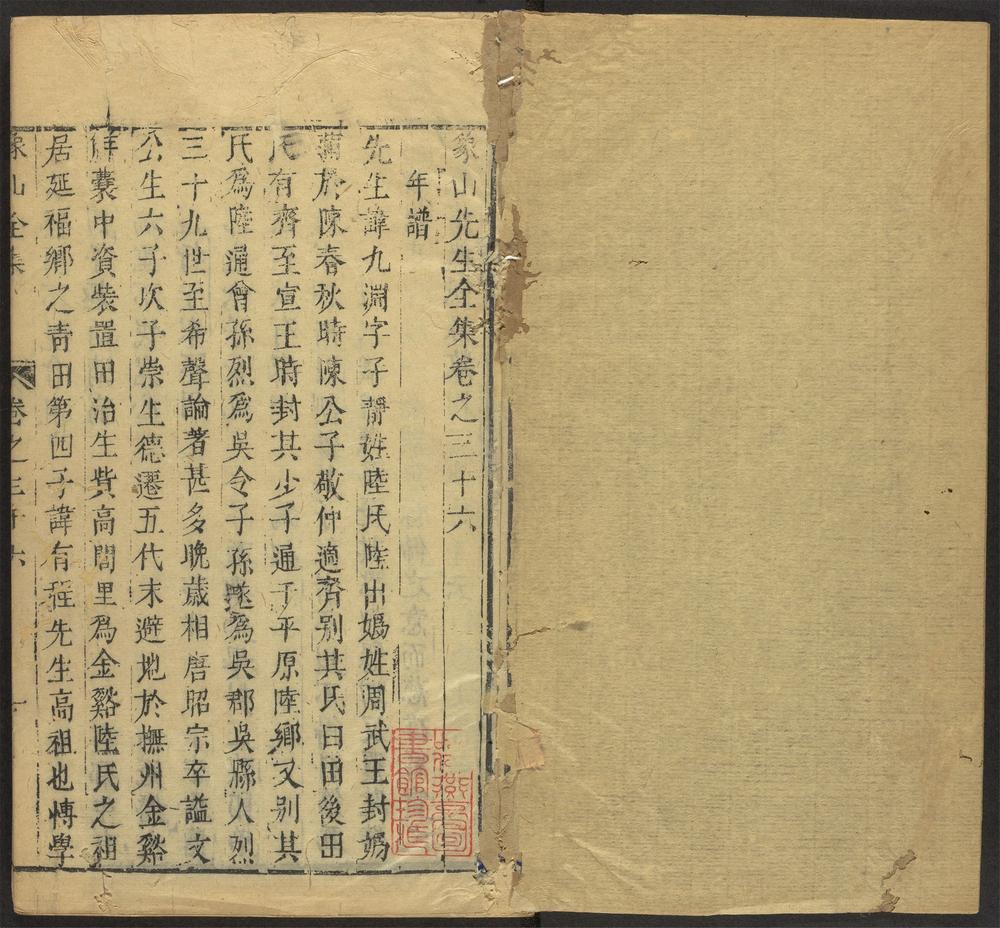 象山先生全集卷之三十六
年譜
先生諱九淵字子靜姓陸氏陸出媯姓周武王封媯
滿於陳春秋時陳公子敬仲適齊别其氏曰田後田
氏有齊至宣王時封其少子通于平原陸鄉又别其
氏爲陸通曾孫烈爲吳令子孫遂爲吳郡吳縣人烈
三十九世至希聲論著甚多晚歲相唐昭宗卒謚文
公生六子次子崇生德遷五代末避地於撫州金谿
解囊中資裝置田治生貲高閭里爲金谿陸氏之祖
居延福鄉之青田第四子諱有程先生高祖也愽學
象山全集 卷之三十六 一